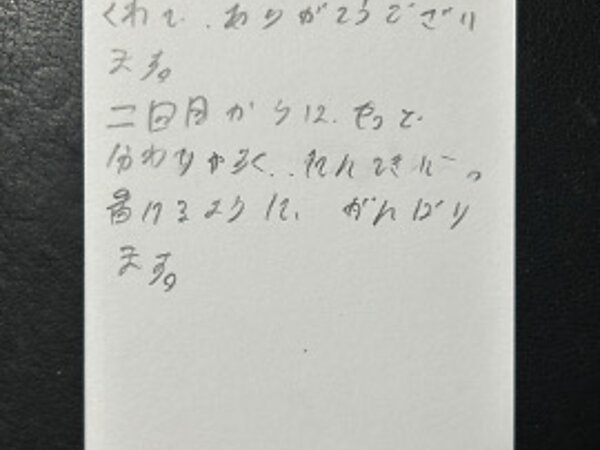 くれて、ありがとうござい
ます。
二回目からは、もっと
分わりやすく、
書けるように、がんばり
ます。